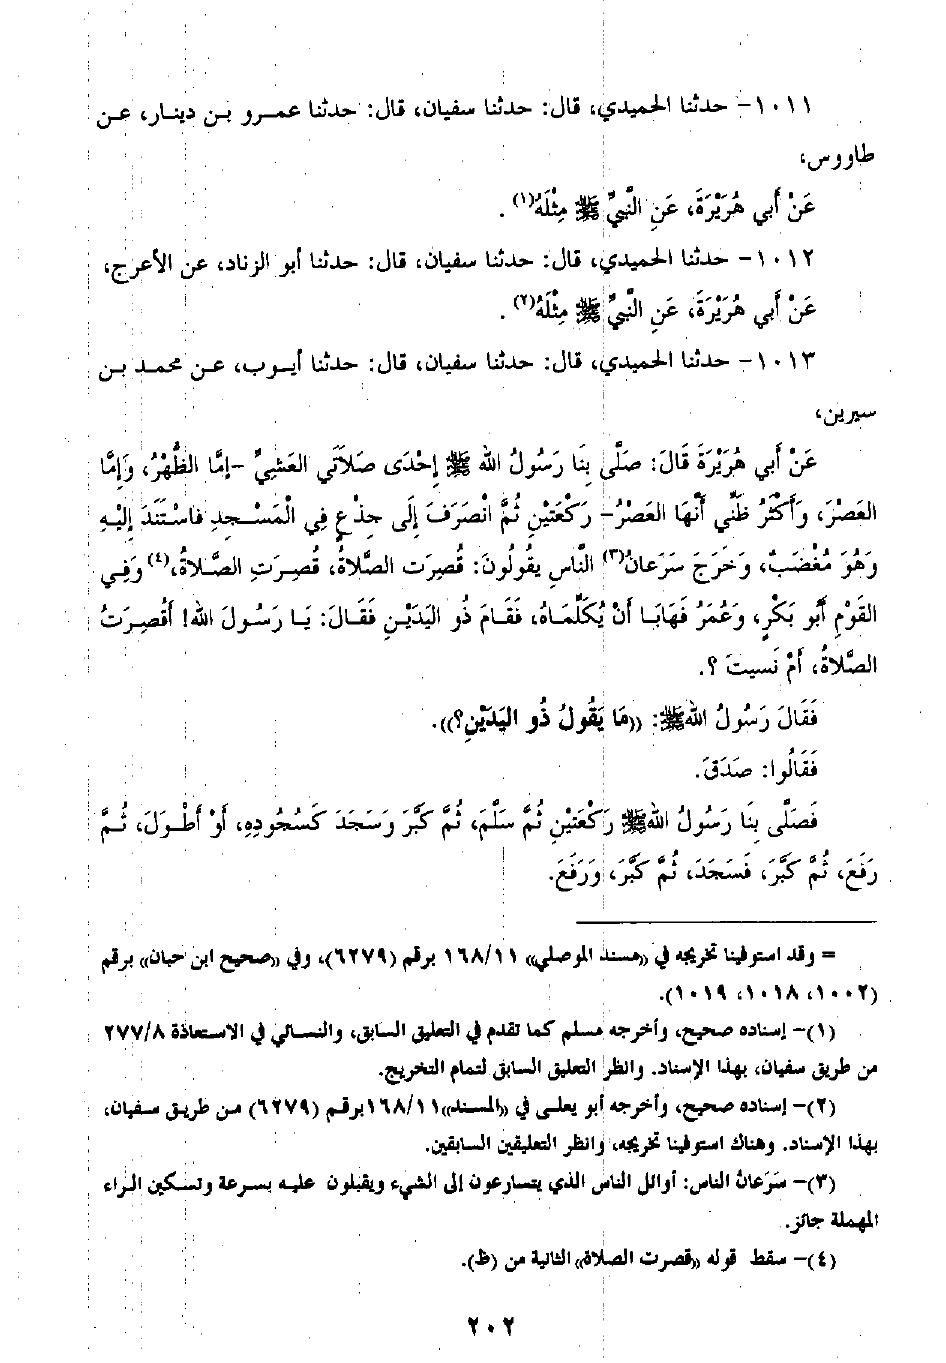 ١٠١١- حدثنا الحميدي، قال: حدثنا سفيان، قال: حدثنا عمرو بن دينار، عن
طاووس،
عَنْ أَبي هُرَيْرَةَ، عَنِ النَّبِيِّ ﷺ مِثْلَهُ(١).
١٠١٢- حدثنا الحميدي، قال: حدثنا سفيان، قال: حدثنا أبو الزناد، عن الأعرج،
عَنْ أَبي هُرَيْرَةَ، عَنِ النَّبِيِّ ﷺ مِثْلَهُ(٢).
١٠١٣- حدثنا الحميدي، قال: حدثنا سفيان، قال: حدثنا أيوب، عن محمد بن
سيرين،
عَنْ أَبي هُرَيْرَةَ قَالَ: صَلَّى بِنَا رَسُولُ الله ﷺ إِحْدَى صَلاَتَي العَشِيِّ -إِمَّا الظُّهْرُ، وَإِمَّا
العَصْرَ، وَأَكْثَرُ ظَنِّي أَنَّهَا العَصْرُ- رَكْعَتَيْنِ ثُمَّ انْصَرَفَ إِلَى جِذْعٍ فِي الْمَسْجِدِ فاسْتَنَدَ إِلَيْهِ
وَهُوَ مُغْضَبٌ، وَخَرَجَ سَرَعَانُ(٣) النَّاسِ يقُولُونَ: قُصِرَت الصَّلاةُ، قُصِرَتِ الصَّلاةُ،(٤) وَفِي
القَوْمِ أَبُو بَكْرٍ، وَعُمَرُ فَهَابَا أَنْ يُكَلِّمَاهُ، فَقَامَ ذُو اليَدَيْنِ فَقَالَ: يَا رَسُولَ الله! أَقُصِرَتْ
الصَّلاةُ، أَمْ نَسيتَ ؟.
فَقَالَ رَسُولُ اللهﷺ: ((مَا يَقُولُ ذُو اليَدَيْنِ؟)).
فَقَالُوا: صَدَقَ.
فَصَلَّى بِنَا رَسُولُ اللهﷺ رَكْعَتَيْنِ ثُمَّ سَلَّمَ، ثُمَّ كَبَّرَ وَسَجَدَ كَسُجُودِهِ، أَوْ أَطْوَلَ، ثُمَّ
رَفَعَ، ثُمَّ كَبَّرَ، فَسَجَدَ، ثُمَّ كَبَّرَ، وَرَفَعَ.
= وقد استوفينا تخريجه في ((مسند الموصلي)) ١٦٨/١١ برقم (٦٢٧٩)، وفي ((صحيح ابن حبان)) برقم
(١٠٠٢، ١٠١٨، ١٠١٩).
(١)- إسناده صحيح، وأخرجه مسلم كما تقدم في التعليق السابق، والنسائي في الاستعاذة ٢٧٧/٨
من طريق سفيان، بهذا الإسناد. وانظر التعليق السابق لتمام التخريج.
(٢)- إسناده صحيح، وأخرجه أبو يعلى في ((المسند))١٦٨/١١برقم (٦٢٧٩) من طريق سفيان،
بهذا الإسناد. وهناك استوفينا تخريجه، وانظر التعليقين السابقين.
(٣)- سَرَعانُ الناس: أوائل الناس الذي يتسارعون إلى الشيء ويقبلون عليه بسرعة وتسكين الراء
المهملة جائز.
(٤)- سقط قوله ((قصرت الصلاة)) الثانية من (ظ).
٢٠٢